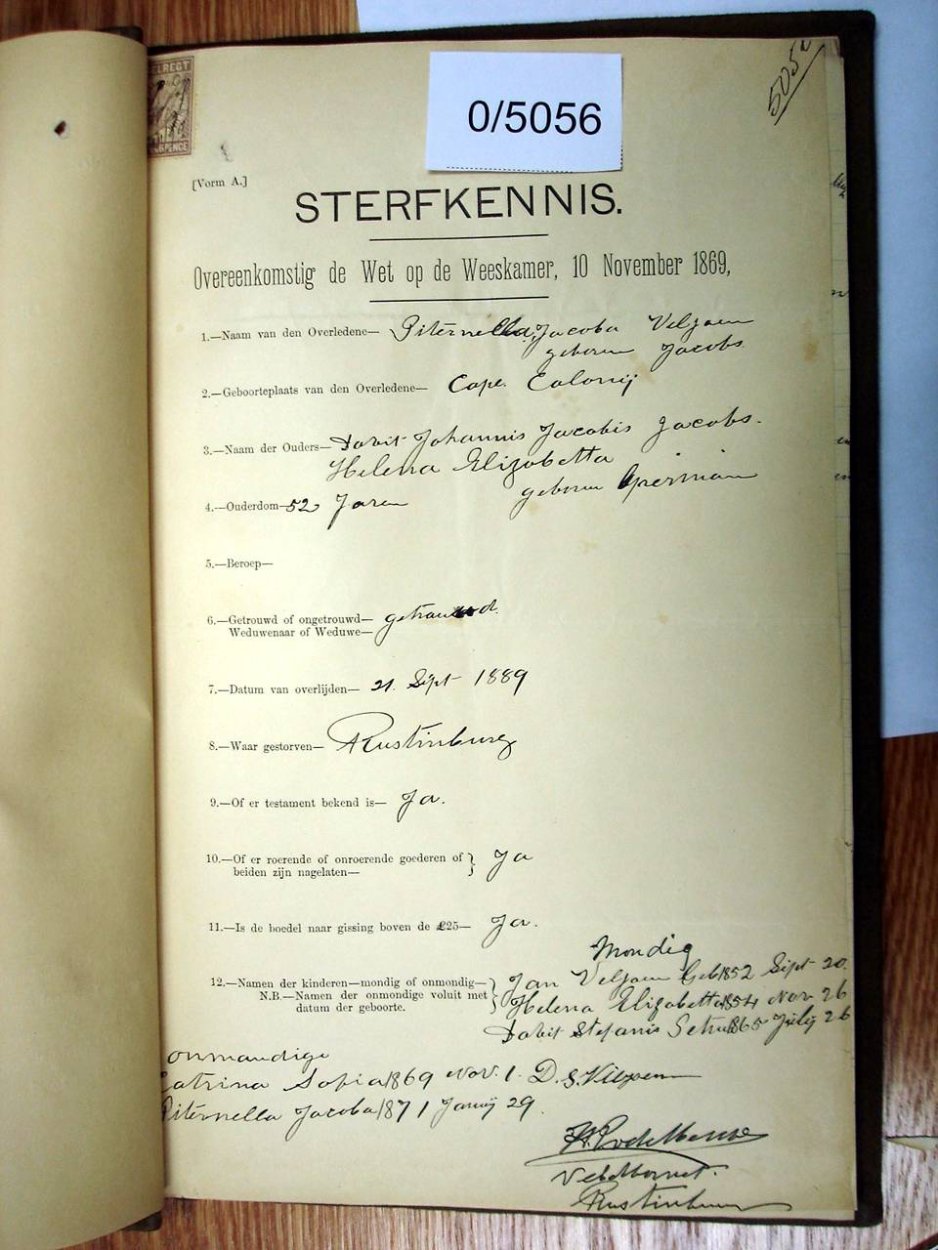 0/5056
[Vorm A.]
STERFKENNIS.
Overeenkomstig de Wet op de Weeskamer, 10 November 1869,
1.—Naam van den Overledene— Piternella Jacoba Veljoen
geboren Jacobs
2.—Geboorteplaats van den Overledene— Cape Colonij
3.—Naam der Ouders— Davit Johannis Jacobis Jacobs.
Helena Elizabetta
geboren
4.—Ouderdom— 52 Jaren
5.—Beroep—
6.—Getrouwd of ongetrouwd— getrouwd.
Weduwenaar of Weduwe—
7.—Datum van overlijden— 21. Sept 1889
8.—Waar gestorven— Rustinburg
9.—Of er testament bekend is— Ja.
10.—Of er roerende of onroerende goederen of } Ja
beiden zijn nagelaten—
11.—Is de boedel naar gissing boven de £25— Ja.
Mondig
12.—Namen der kinderen—mondig of onmondig— } Jan Veljoen Geb 1852 Sept 20.
N.B.—Namen der onmondige voluit met } Helena Elizabetta 1854 Nov 26
datum der geboorte.
Davit Stefanis 1865 July 26
onmondige
Catrina Sofia 1869 Nov. 1. D. S. Viljoen
Piternella Jacoba 1871 29.
Veldkornet.
Rustinburg